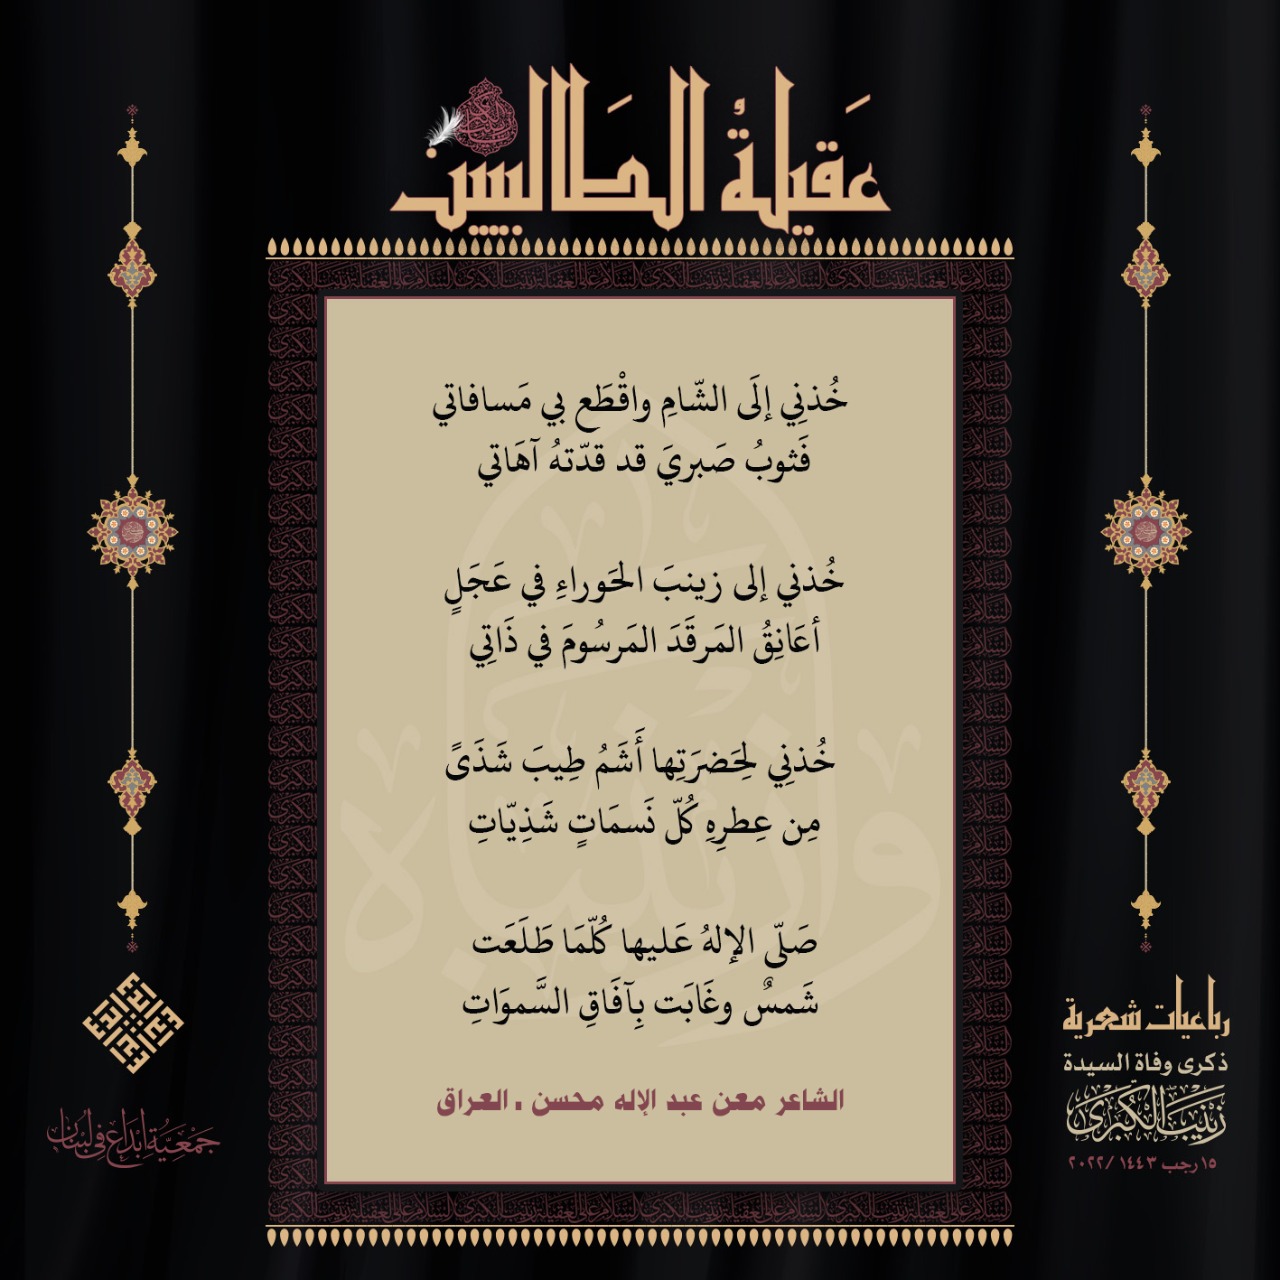 عَقيلةُ الطَالبيين
خُذنِي إلَى الشّامِ واقْطَع بي مَسافاتي
فَثوبُ صَبريَ قد قدّتهُ آهَاتي
خُذني إلى زينبَ الحَوراءِ في عَجَلٍ
أعَانِقُ المَرقَدَ المَرسُومَ في ذَاتِي
خُذنِي لِحَضرَتِها أَشَمُ طِيبَ شَذَىً
مِن عِطرِهِ كُلّ نَسمَاتٍ شَذِيّاتِ
صَلّى الإلهُ عَليها كُلّمَا طَلَعَت
شَمسٌ وغَابَت بِآفَاقِ السَّموَاتِ
الشاعر معن عبد الإله محسن . العراق
رباعيات شعرية
ذكرى وفاة السيدة
زَيْنَبَ الْكُبْرَىٰ
١٥ رجب ١٤٤٣ /٢٠٢٢
جَمْعِيَّةُ إِبْدَاع فِي لُبْنَان
وا زينباه